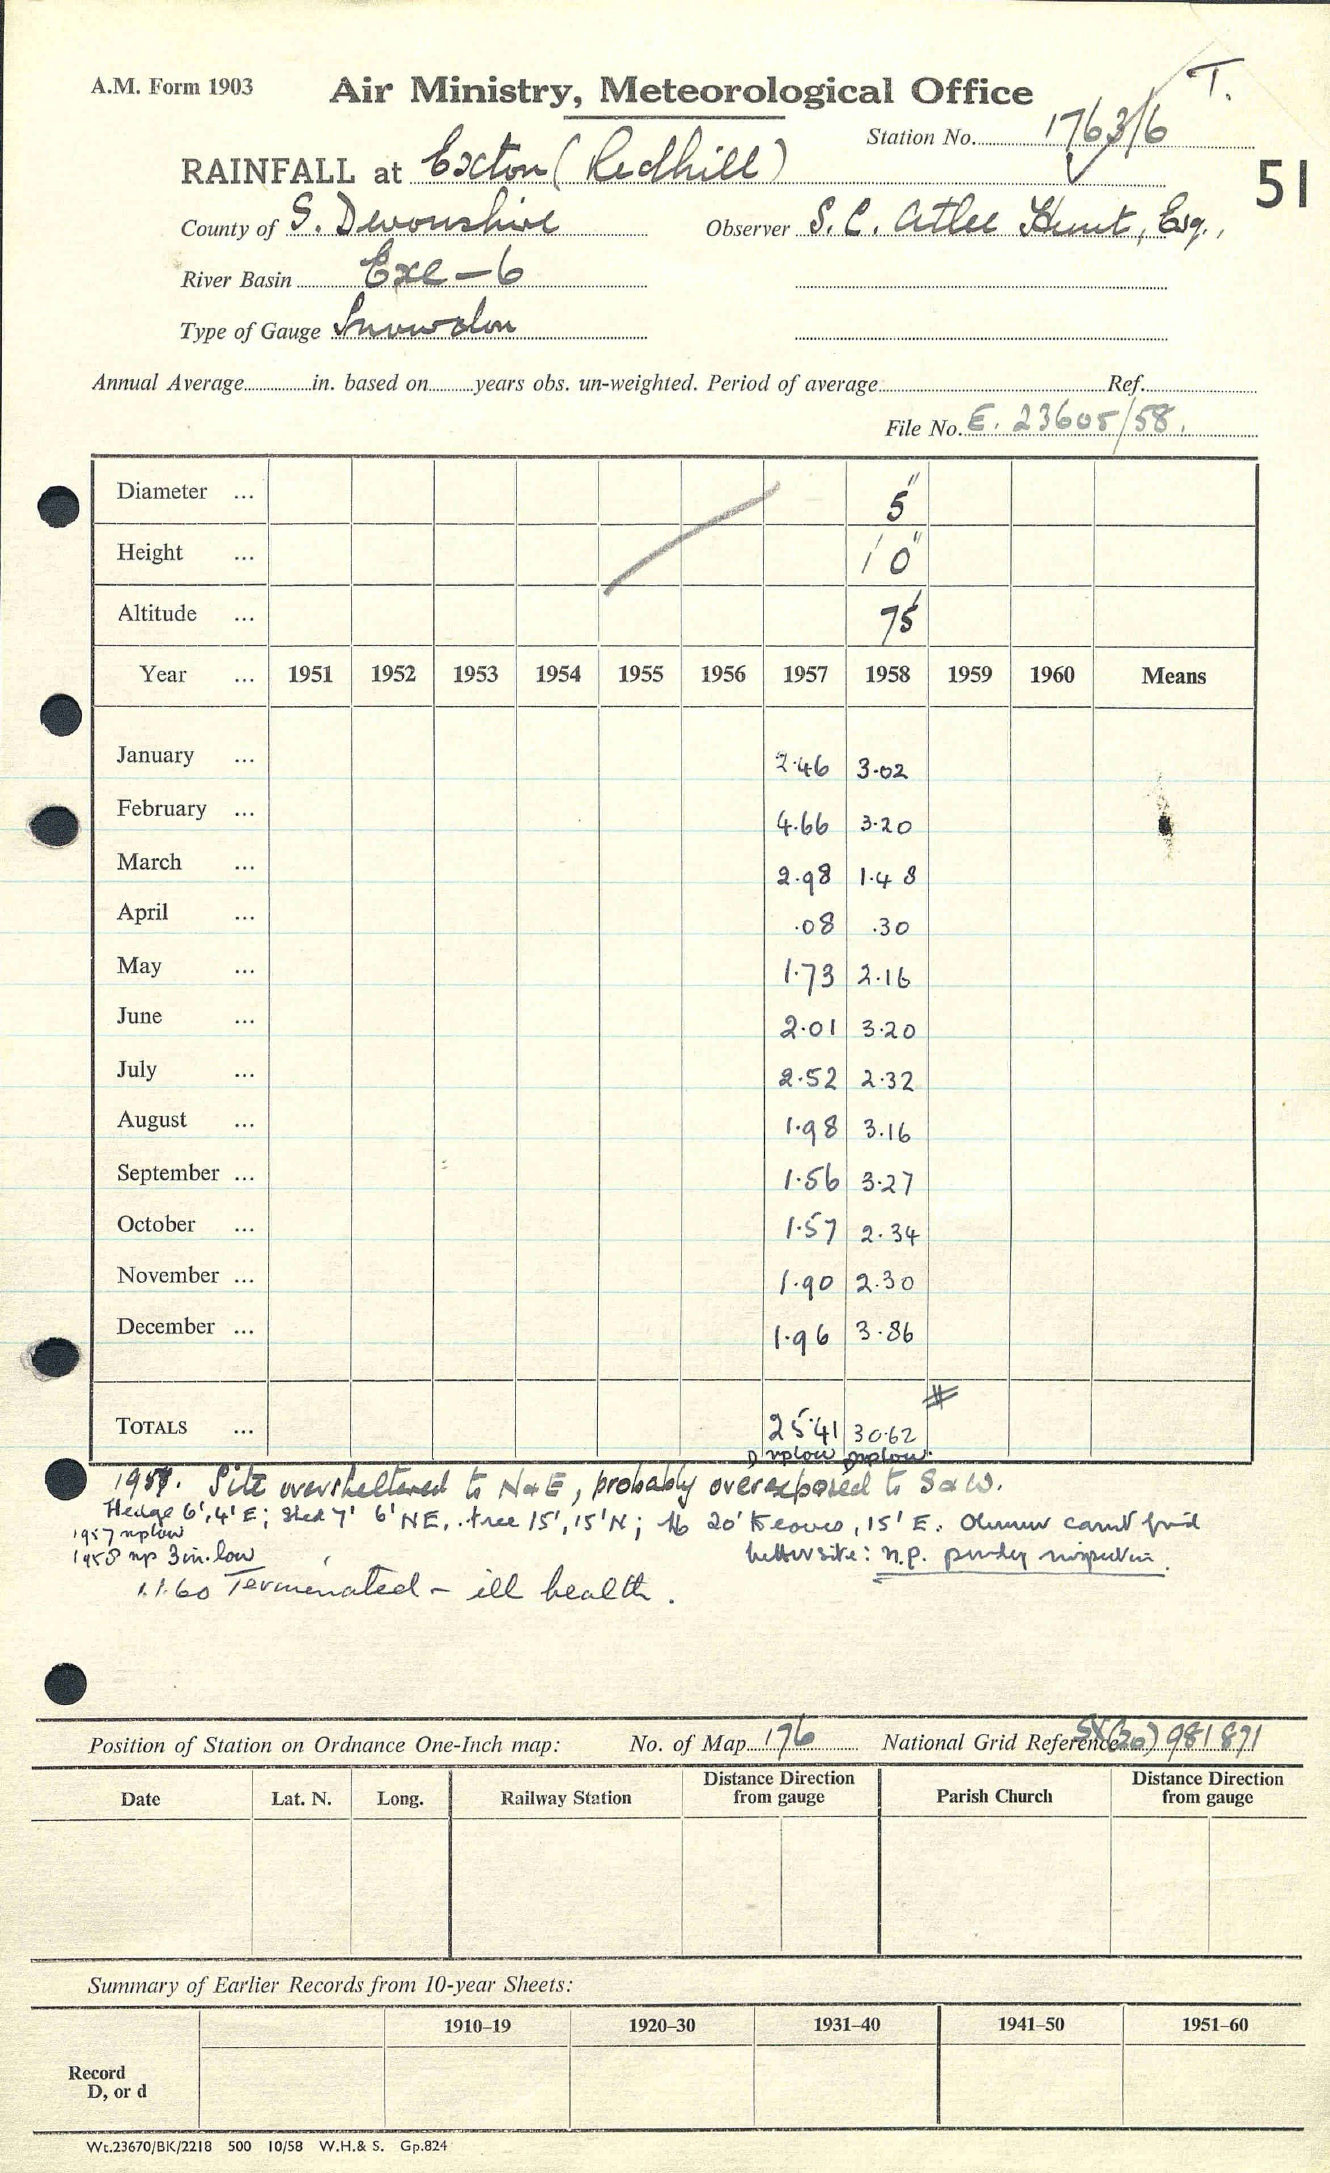 T.
A.M. Form 1903 Air Ministry, Meteorological Office
Station No. 1763/6
RAINFALL at Exton (Redhill)
51
County of S. Devonshire Observer S. C. Atlee Hunt, Esq.,
River Basin Exe - 6
Type of Gauge Snowdon
Annual Average in. based on years obs. un-weighted. Period of average Ref.
File No. E. 23605/58.
Diameter ... 5"
Height ... 1' 0"
Altitude ... 75'
Year ... 1951 1952 1953 1954 1955 1956 1957 1958 1959 1960 Means
January ... 2.46 3.02
February ... 4.66 3.20
March ... 2.98 1.48
April ... .08 .30
May ... 1.73 2.16
June ... 2.01 3.20
July ... 2.52 2.32
August ... 1.98 3.16
September ... 1.56 3.27
October ... 1.57 2.34
November ... 1.90 2.30
December ... 1.96 3.86
#
TOTALS ... 25.41 30.62
nplow nplow
Site oversheltered to N & E, probably overexposed to S & W.
Hedge 6', 4' E; Shed 7' 6' NE, tree 15', 15' N; 20' to eaves, 15' E. Observer cannot find
1957 nplow
1958 np 3 in. low better site: n.p. pending inspection.
1.1.60 Terminated - ill health.
Position of Station on Ordnance One-Inch map: No. of Map 176 National Grid Reference SX(20) 981 871
Date Lat. N. Long. Railway Station Distance Direction from gauge Parish Church Distance Direction from gauge
Summary of Earlier Records from 10-year Sheets:
1910–19 1920–30 1931–40 1941–50 1951–60
Record
D, or d
Wt.23670/BK/2218 500 10/58 W.H.& S. Gp.824